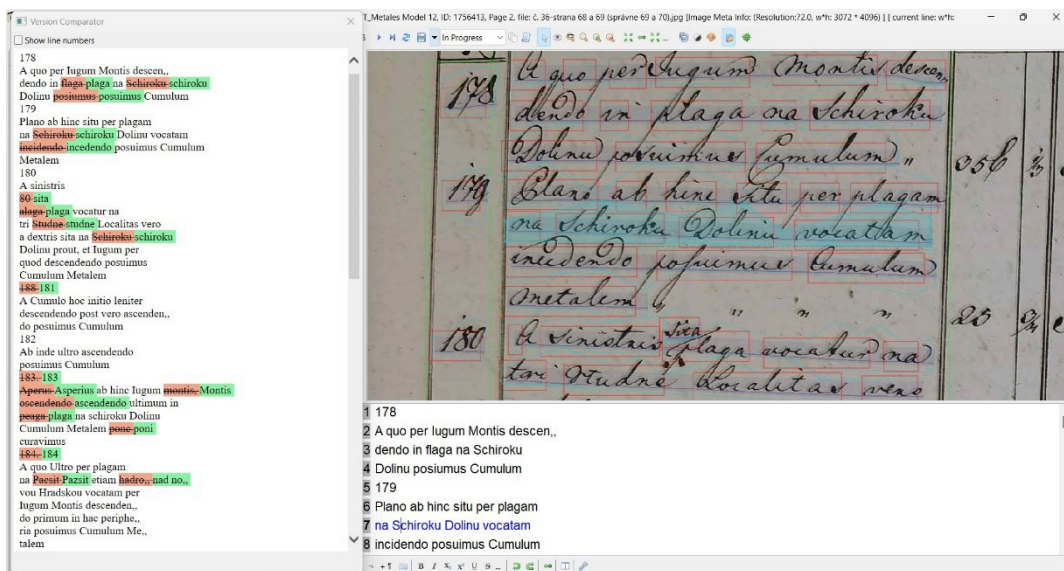 Version Comparator
Show line numbers
178
A quo per Iugum Montis descen,,
dendo in flaga plaga na Schiroku schiroku
Dolinu posiumus posuimus Cumulum
179
Plano ab hinc situ per plagam
na Schiroku schiroku Dolinu vocatam
incidendo incedendo posuimus Cumulum
Metalem
180
A sinistris
80 sita
alaga plaga vocatur na
tri Studne studne Localitas vero
a dextris sita na Schiroku schiroku
Dolinu prout, et Iugum per
quod descendendo posuimus
Cumulum Metalem
188 181
A Cumulo hoc initio leniter
descendendo post vero ascenden,,
do posuimus Cumulum
182
Ab inde ultro ascendendo
posuimus Cumulum
183. 183
Aperus Asperius ab hinc Iugum montis, Montis
oscendendo ascendendo ultimum in
peaga plaga na schiroku Dolinu
Cumulum Metalem pone poni
curavimus
184. 184
A quo Ultro per plagam
na Paesit Pazsit etiam hadro,, nad no,,
vou Hradskou vocatam per
Iugum Montis descenden,,
do primum in hac periphe,,
ria posuimus Cumulum Me,,
talem
T_Metales Model 12, ID: 1756413, Page 2, file: č. 36-strana 68 a 69 (správne 69 a 70).jpg [Image Meta Info: (Resolution:72.0, w*h: 3072 * 4096) ] [ current line: w*h:
In Progress
178 A quo per Iugum Montis descen,,
dendo in plaga na Schiroku
Dolinu posuimus Cumulum ,, 356
179 Plano ab hinc Situ per plagam
na Schiroku Dolinu vocattam
incedendo posuimus Cumulum
metalem ,, ,, ,, ,, 25
180 A sinistris sita plaga vocatur na
tri Studne Localitas vero
1 178
2 A quo per Iugum Montis descen,,
3 dendo in flaga na Schiroku
4 Dolinu posiumus Cumulum
5 179
6 Plano ab hinc situ per plagam
7 na Schiroku Dolinu vocatam
8 incidendo posuimus Cumulum